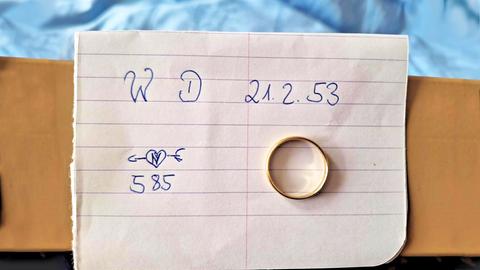 W D 21.2.53
585